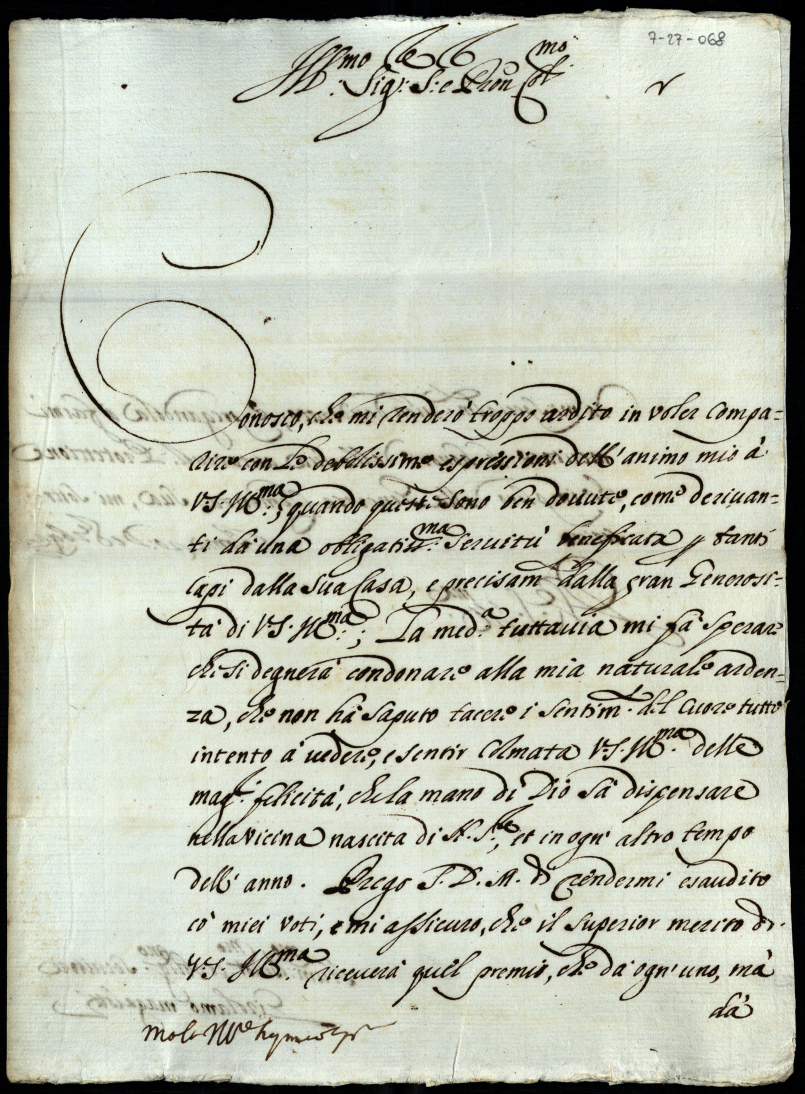 7-27-068
Ill.mo Sig.r S.r e Pron Col.mo
Conosco, che mi renderò troppo ardito in voler compa-
rire con le debolissime espressioni dell'animo mio à
V.S. Ill.ma; quando queste sono ben dovute, come derivan-
ti dà una obligatiss.ma servitù beneficata p tanti
capi dalla sua Casa, e precisam.te dalla gran Generosi-
tà di V.S. Ill.ma; La med.a tuttavia mi fà sperare
che si degnerà condonare alla mia naturale arden-
za, che non hà saputo tacere i sentim.ti del cuore tutto
intento à vedere, e sentir colmata V.S. Ill.ma delle
mag.ri felicità, che la mano di Dio sà dispensare
nella vicina nascita di N. S.re, et in ogn' altro tempo
dell' anno. Prego S. D. M. di rendermi esaudito
cò miei voti, e mi assicuro, che il superior merito di
V.S. Ill.ma riceverà quel premio, che dà ogn'uno, mà
dà